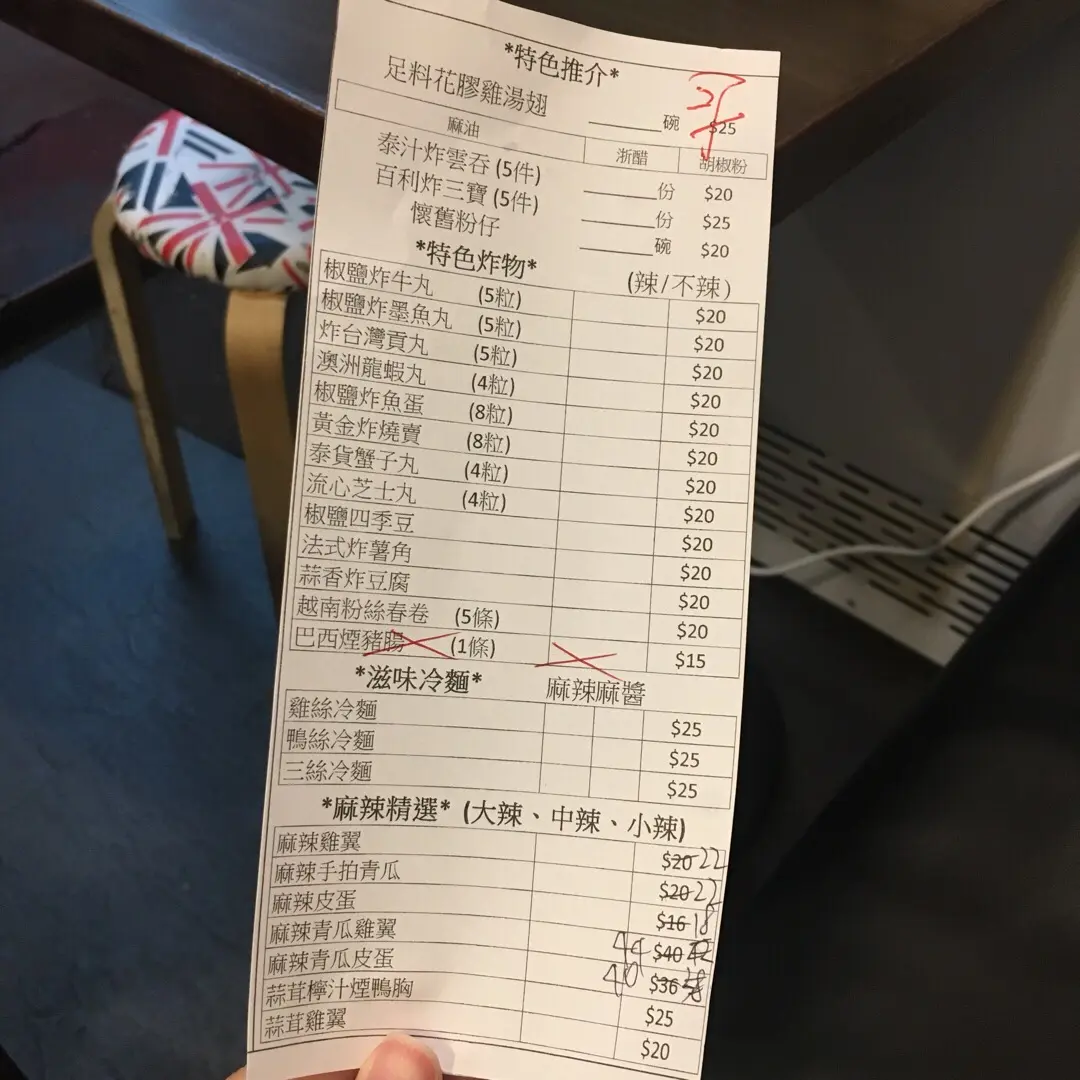 *特色推介*
足料花膠雞湯翅 ______碗 $25
麻油 浙醋 胡椒粉
泰汁炸雲吞 (5件) ______份 $20
百利炸三寶 (5件) ______份 $25
懷舊粉仔 ______碗 $20
*特色炸物* (辣/不辣)
椒鹽炸牛丸 (5粒) $20
椒鹽炸墨魚丸 (5粒) $20
炸台灣貢丸 (5粒) $20
澳洲龍蝦丸 (4粒) $20
椒鹽炸魚蛋 (8粒) $20
黃金炸燒賣 (8粒) $20
泰貨蟹子丸 (4粒) $20
流心芝士丸 (4粒) $20
椒鹽四季豆 $20
法式炸薯角 $20
蒜香炸豆腐 $20
越南粉絲春卷 (5條) $20
巴西煙豬腸 (1條) $15
*滋味冷麵* 麻辣麻醬
雞絲冷麵 $25
鴨絲冷麵 $25
三絲冷麵 $25
*麻辣精選* (大辣、中辣、小辣)
麻辣雞翼 $20 22
麻辣手拍青瓜 $20 22
麻辣皮蛋 $16 18
麻辣青瓜雞翼 44 $40
麻辣青瓜皮蛋 40 $36
蒜茸檸汁煙鴨胸 $25
蒜茸雞翼 $20